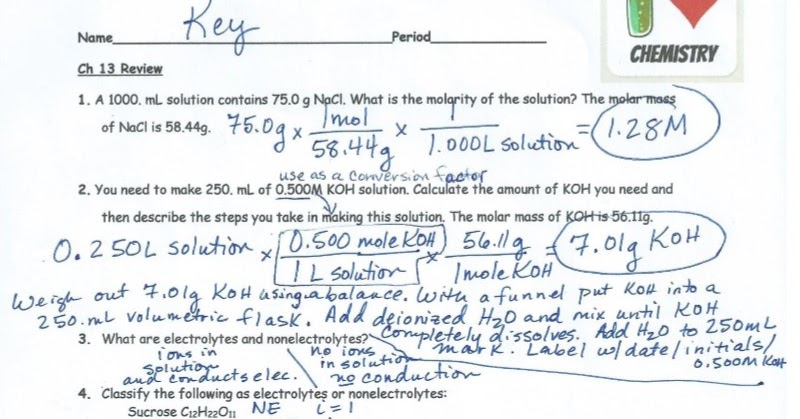 Name Key Period
CHEMISTRY
Ch 13 Review
1. A 1000. mL solution contains 75.0 g NaCl. What is the molarity of the solution? The molar mass
of NaCl is 58.44g. 75.0g x 1mol / 58.44g x 1 / 1.000L solution = 1.28M
use as a conversion factor
2. You need to make 250. mL of 0.500M KOH solution. Calculate the amount of KOH you need and
then describe the steps you take in making this solution. The molar mass of KOH is 56.11g.
0.250L solution x 0.500 mole KOH / 1 L solution x 56.11g / 1mole KOH = 7.01g KOH
Weigh out 7.01g KOH using a balance. With a funnel put KOH into a
250.mL volumetric flask. Add deionized H2O and mix until KOH
completely dissolves. Add H2O to 250mL
mark. Label w/date/initials/
0.500M KOH
3. What are electrolytes and nonelectrolytes?
ions in
solution
and conducts elec.
no ions
in solution
no conduction
4. Classify the following as electrolytes or nonelectrolytes:
Sucrose C12H22O11 NE i=1